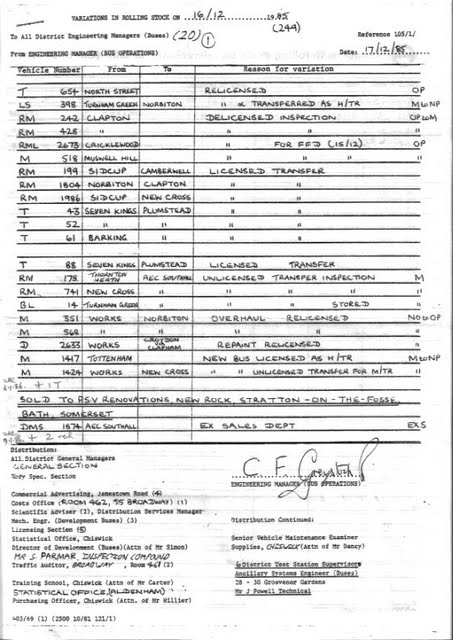 VARIATIONS IN ROLLING STOCK ON 16/12 1985
(244)
To All District Engineering Managers (Buses) (20) (1) Reference 105/1/
From ENGINEERING MANAGER (BUS OPERATIONS) Date: 17/12/85
Vehicle Number From To Reason for variation
T 654 NORTH STREET RELICENSED OP
LS 398 TURNHAM GREEN NORBITON " & TRANSFERRED AS H/TR M to NP
RM 242 CLAPTON DELICENSED INSPECTION OP to M
RM 428 " " " "
RML 2673 CRICKLEWOOD " FOR FFD (15/12) OP
M 518 MUSWELL HILL " " " "
RM 199 SIDCUP CAMBERWELL LICENSED TRANSFER
RM 1804 NORBITON CLAPTON " "
RM 1986 SIDCUP NEW CROSS " "
T 43 SEVEN KINGS PLUMSTEAD " "
T 52 " " " "
T 61 BARKING " " "
T 88 SEVEN KINGS PLUMSTEAD LICENSED TRANSFER
RM 178 THORNTON HEATH AEC SOUTHALL UNLICENSED TRANSFER INSPECTION M
RM 741 NEW CROSS " " " " "
BL 14 TURNHAM GREEN " " " STORED "
M 351 WORKS NORBITON OVERHAUL RELICENSED NO to OP
M 568 " " " " "
D 2633 WORKS CROYDON VIA CLAPHAM REPAINT RELICENSED "
M 1417 TOTTENHAM NEW BUS LICENSED AS H/TR M to NP
M 1424 WORKS NEW CROSS " " UNLICENSED TRANSFER FOR M/TR M
+ 1T
SOLD TO PSV RENOVATIONS, NEW ROCK, STRATTON-ON-THE-FOSSE,
BATH, SOMERSET
DMS 1874 AEC SOUTHALL EX SALES DEPT EXS
Distribution:
All District General Managers
GENERAL SECTION
Body Spec. Section
ENGINEERING MANAGER (BUS OPERATIONS)
Commercial Advertising, Jamestown Road (4)
Costs Office (ROOM 462, 55 BROADWAY) (1)
Scientific Adviser (2), Distribution Services Manager
Mech. Engr. (Development Buses) (3) Distribution Continued:
Licensing Section (5)
Statistical Office, Chiswick Senior Vehicle Maintenance Examiner
Director of Development (Buses)(Attn of Mr Simon) Supplies, CHISWICK (Attn of Mr Dancy)
MR S. PARMAR, INSPECTION COMPOUND
Traffic Auditor, BROADWAY, Room 467 (2) 6 District Test Station Supervisors
Ancillary Systems Engineer (Buses)
Training School, Chiswick (Attn of Mr Carter) 28 - 30 Grosvenor Gardens
STATISTICAL OFFICE, (ALDENHAM) Mr J Powell Technical
Purchasing Officer, Chiswick (Attn. of Mr Hillier)
403/69 (1) (2500 10/81 121/1)